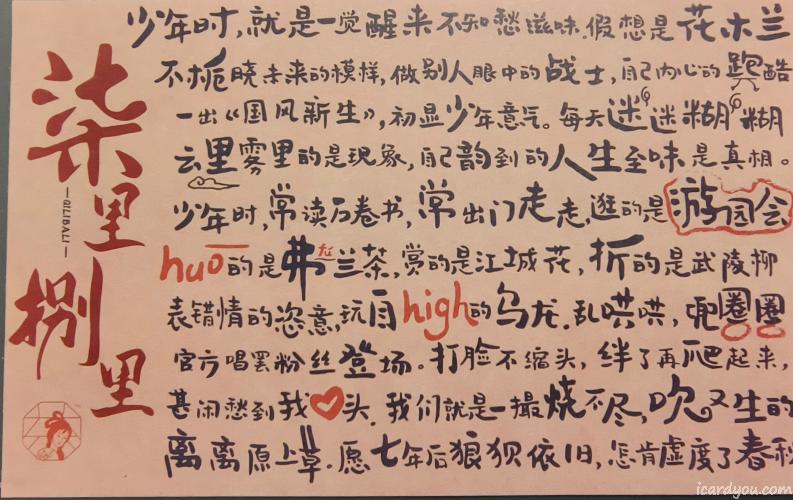 柒里捌里
—QILIBALI—
少年时,就是一觉醒来不知愁滋味.假想是花木兰
不栀晓未来的模样,做别人眼中的战士,自己内心的跑酷
一出《国风新生》,初显少年意气。每天迷迷糊糊
云里雾里的是现象,自己韵到的人生至味是真相。
少年时,常读万卷书,常出门走走,逛的是游园会
huō的是弗兰茶,赏的是江城花,折的是武陵柳
表错情的恣意,玩自high的乌龙.乱哄哄,兜圈圈
官方唱罢粉丝登场。打脸不缩头,绊了再爬起来,
甚闲愁到我头.我们就是一撮烧不尽,吹又生的
离离原上草.愿七年后狼狈依旧,怎肯虚度了春秋
icardyou.com